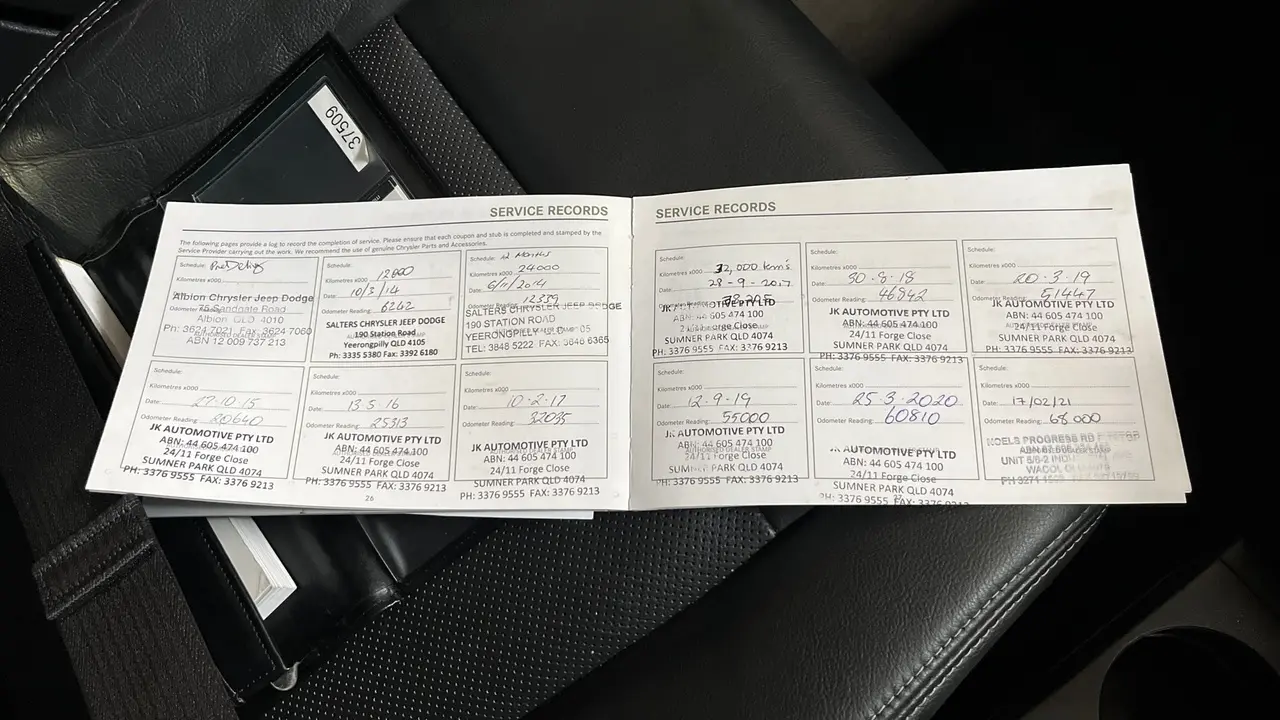 37509
SERVICE RECORDS
The following pages provide a log to record the completion of service. Please ensure that each coupon and stub is completed and stamped by the
Service Provider carrying out the work. We recommend the use of genuine Chrysler Parts and Accessories.
Schedule:
Kilometres x000
Albion Chrysler Jeep Dodge
Odometer Reading:
75 Sandgate Road
Albion QLD 4010
Ph: 3624 7021 Fax: 3624 7060
ABN 12 009 737 213
Schedule:
Kilometres x000 12000
Date: 10/3/14
Odometer Reading: 6242
SALTERS CHRYSLER JEEP DODGE
190 Station Road
Yeerongpilly QLD 4105
Ph: 3335 5380 Fax: 3392 6180
Schedule: 12 Months
Kilometres x000 24000
Date: /11/2014
Odometer Reading: 12339
SALTERS CHRYSLER JEEP DODGE
190 STATION ROAD
YEERONGPILLY
TEL: 3848 5222 FAX: 3848 6365
Schedule:
Kilometres x000
Date: 27-10-15
Odometer Reading: 20640
JK AUTOMOTIVE PTY LTD
ABN: 44 605 474 100
24/11 Forge Close
SUMNER PARK QLD 4074
PH: 3376 9555 FAX: 3376 9213
Schedule:
Kilometres x000
Date: 13.5.16
Odometer Reading: 25313
JK AUTOMOTIVE PTY LTD
ABN: 44 605 474 100
24/11 Forge Close
SUMNER PARK QLD 4074
PH: 3376 9555 FAX: 3376 9213
Schedule:
Kilometres x000
Date: 10.2.17
Odometer Reading: 32035
JK AUTOMOTIVE PTY LTD
AUTHORISED DEALER STAMP
ABN: 44 605 474 100
24/11 Forge Close
SUMNER PARK QLD 4074
PH: 3376 9555 FAX: 3376 9213
26
SERVICE RECORDS
Schedule:
Kilometres x000 32,000 km's
Date: 28-9-2017
JK AUTOMOTIVE PTY LTD
ABN: 44 605 474 100
Forge Close
SUMNER PARK QLD 4074
PH: 3376 9555 FAX: 3376 9213
Schedule:
Kilometres x000
Date: 30-8-18
Odometer Reading: 46842
JK AUTOMOTIVE PTY LTD
ABN: 44 605 474 100
24/11 Forge Close
SUMNER PARK QLD 4074
PH: 3376 9555 FAX: 3376 9213
Schedule:
Kilometres x000
Date: 20-3-19
Odometer Reading: 51447
JK AUTOMOTIVE PTY LTD
ABN: 44 605 474 100
24/11 Forge Close
SUMNER PARK QLD 4074
PH: 3376 9555 FAX: 3376 9213
Schedule:
Kilometres x000
Date: 12-9-19
Odometer Reading: 55000
JK AUTOMOTIVE PTY LTD
AUTHORISED DEALER STAMP
ABN: 44 605 474 100
24/11 Forge Close
SUMNER PARK QLD 4074
PH: 3376 9555 FAX: 3376 9213
Schedule:
Kilometres x000
Date: 25-3-2020
Odometer Reading: 60810
JK AUTOMOTIVE PTY LTD
ABN: 44 605 474 100
24/11 Forge Close
SUMNER PARK QLD 4074
PH: 3376 9555 FAX: 3376 9213
Schedule:
Kilometres x000
Date: 17/02/21
Odometer Reading: 68000
NOELS PROGRESS RD